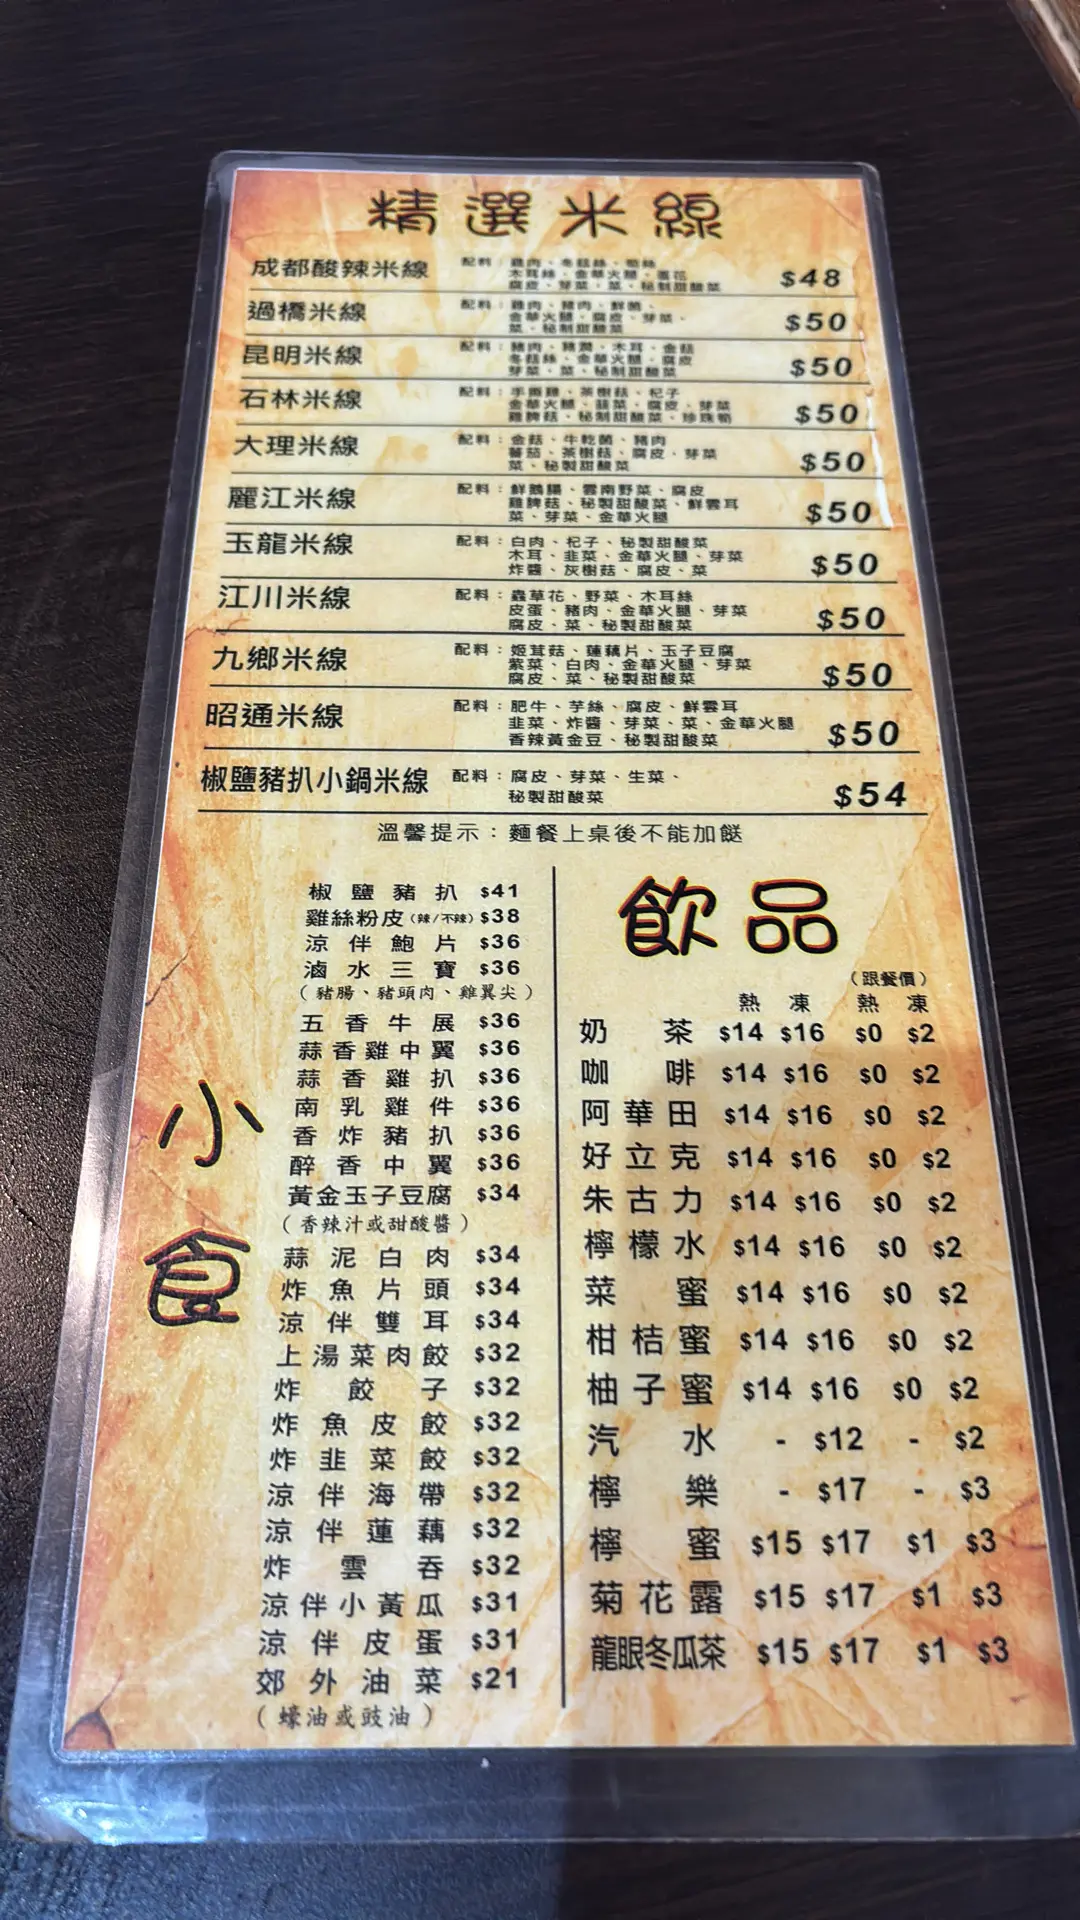 精選米線
成都酸辣米線 配料：雞肉、冬菇絲、筍絲 $48
木耳絲、金華火腿、蛋花
腐皮、芽菜、菜、秘制甜酸菜
過橋米線 配料：雞肉、豬肉、鮮菌、 $50
金華火腿、腐皮、芽菜、
菜、秘制甜酸菜
昆明米線 配料：豬肉、豬潤、木耳、金菇 $50
冬菇絲、金華火腿、腐皮
芽菜、菜、秘制甜酸菜
石林米線 配料：手撕雞、茶樹菇、杞子 $50
金華火腿、韮菜、腐皮、芽菜
雞脾菇、秘制甜酸菜、珍珠筍
大理米線 配料：金菇、牛乾菌、豬肉 $50
蕃茄、茶樹菇、腐皮、芽菜
菜、秘製甜酸菜
麗江米線 配料：鮮鵝腸、雲南野菜、腐皮 $50
雞脾菇、秘製甜酸菜、鮮雲耳
菜、芽菜、金華火腿
玉龍米線 配料：白肉、杞子、秘製甜酸菜 $50
木耳、韭菜、金華火腿、芽菜
炸醬、灰樹菇、腐皮、菜
江川米線 配料：蟲草花、野菜、木耳絲 $50
皮蛋、豬肉、金華火腿、芽菜
腐皮、菜、秘製甜酸菜
九鄉米線 配料：姬茸菇、蓮藕片、玉子豆腐 $50
紫菜、白肉、金華火腿、芽菜
腐皮、菜、秘製甜酸菜
昭通米線 配料：肥牛、芋絲、腐皮、鮮雲耳 $50
韭菜、炸醬、芽菜、菜、金華火腿
香辣黃金豆、秘製甜酸菜
椒鹽豬扒小鍋米線 配料：腐皮、芽菜、生菜、 $54
秘製甜酸菜
溫馨提示：麵餐上桌後不能加餸
小食
椒鹽豬扒 $41
雞絲粉皮（辣/不辣）$38
涼伴鮑片 $36
滷水三寶 $36
（豬腸、豬頭肉、雞翼尖）
五香牛展 $36
蒜香雞中翼 $36
蒜香雞扒 $36
南乳雞件 $36
香炸豬扒 $36
醉香中翼 $36
黃金玉子豆腐 $34
（香辣汁或甜酸醬）
蒜泥白肉 $34
炸魚片頭 $34
涼伴雙耳 $34
上湯菜肉餃 $32
炸餃子 $32
炸魚皮餃 $32
炸韭菜餃 $32
涼伴海帶 $32
涼伴蓮藕 $32
炸雲吞 $32
涼伴小黃瓜 $31
涼伴皮蛋 $31
郊外油菜 $21
（蠔油或豉油）
飲品
（跟餐價）
熱 凍 熱 凍
奶茶 $14 $16 $0 $2
咖啡 $14 $16 $0 $2
阿華田 $14 $16 $0 $2
好立克 $14 $16 $0 $2
朱古力 $14 $16 $0 $2
檸檬水 $14 $16 $0 $2
菜蜜 $14 $16 $0 $2
柑桔蜜 $14 $16 $0 $2
柚子蜜 $14 $16 $0 $2
汽水 - $12 - $2
檸樂 - $17 - $3
檸蜜 $15 $17 $1 $3
菊花露 $15 $17 $1 $3
龍眼冬瓜茶 $15 $17 $1 $3